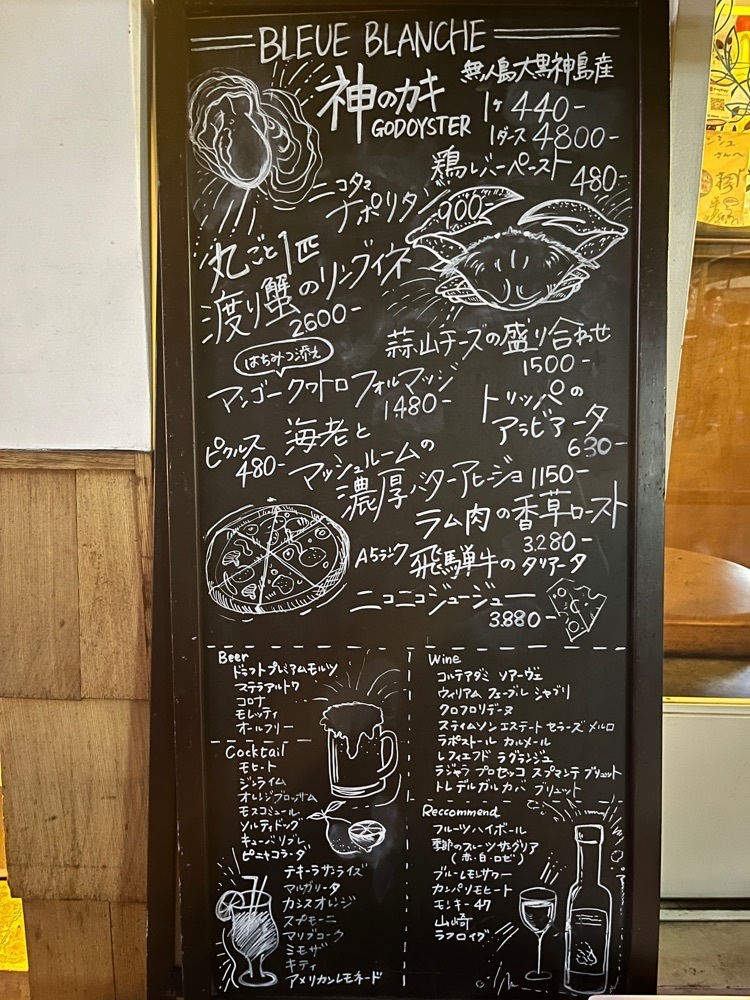 BLEUE BLANCHE
神のカキ
GODOYSTER
無人島大黒神島産
1ヶ 440-
1ダース 4800-
鶏レバーペースト
480-
ニコタマ
ナポリタン
900-
丸ごと1匹
渡り蟹のリングイネ
2600-
蒜山チーズの盛り合わせ
1500-
はちみつ添え
マンゴークワトロフォルマッジ
1480-
トリッパの
アラビアータ
630-
ピクルス
480-
海老と
マッシュルームの
濃厚バターアヒージョ 1150-
ラム肉の香草ロースト
3280-
A5ランク 飛騨牛のタリアータ
ニコニコジュージュー
3880-
Beer
ドラフトプレミアムモルツ
ステラアルトワ
コロナ
モレッティ
オールフリー
Cocktail
モヒート
ジンライム
オレンジブロッサム
モスコミュール
ソルティドッグ
キューバリブレ
ピニャコラーダ
テキーラサンライズ
マルガリータ
カシスオレンジ
スプモーニ
マリブコーク
ミモザ
キティ
アメリカンレモネード
Wine
コルテアダミ ソアーヴェ
ウィリアム フェーブル シャブリ
クロフロリデーヌ
スティムソンエステートセラーズ メルロ
ラポストール カルメール
レフィエフド ラグランジュ
ラジャラ プロセッコ スプマンテ ブリュット
トレデルガル カバ ブリュット
Reccommend
フルーツハイボール
季節のフルーツサングリア
(赤・白・ロゼ)
ブルームレモンサワー
カンパリモヒート
モンキー47
山崎
ラフロイグ